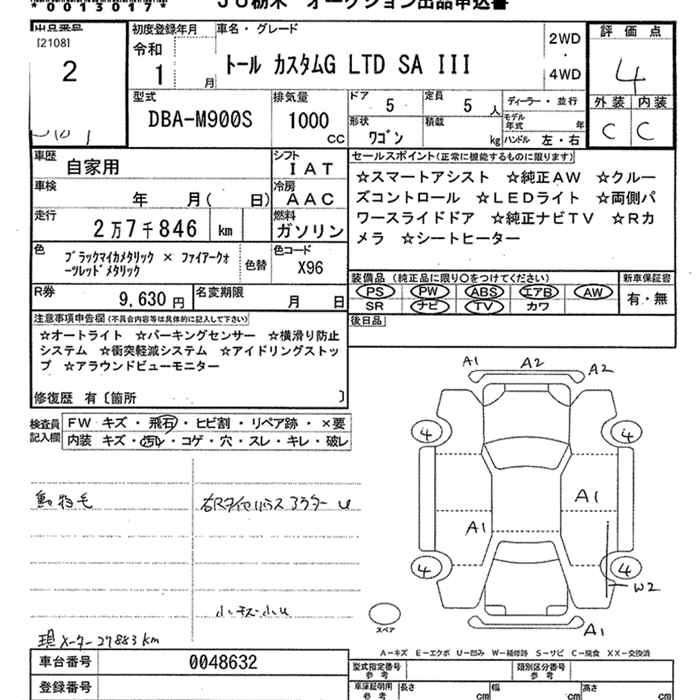 *00013017*
JU栃木 オークション出品申込書
出品番号
[2108]
2
初度登録年月
令和
1 月
車名・グレード
トール カスタムG LTD SA III
2WD
・
4WD
評価点
4
外装 内装
C C
型式
DBA-M900S
排気量
1000
CC
ドア 5
定員 5 人
形状 ワゴン
積載 kg
ディーラー・並行
モデル年式 年
ハンドル 左・右
車歴
自家用
シフト
IAT
車検
年 月( 日)
冷房
AAC
走行
2万7千846 km
燃料
ガソリン
色
ブラックマイカメタリック × ファイアークォ
ーツレッドメタリック
色替
色コード
X96
R券
9,630円
名変期限
月 日
セールスポイント(正常に機能するものに限ります)
☆スマートアシスト ☆純正AW ☆クルー
ズコントロール ☆LEDライト ☆両側パ
ワースライドドア ☆純正ナビTV ☆Rカ
メラ ☆シートヒーター
装備品(純正品に限り○をつけてください)
新車保証書
PS PW ABS エアB AW
SR ナビ TV カワ
有・無
後日品
注意事項申告欄(不具合内容等は具体的に記入して下さい)
☆オートライト ☆パーキングセンサー ☆横滑り防止
システム ☆衝突軽減システム ☆アイドリングストッ
プ ☆アラウンドビューモニター
修復歴 有〔箇所 〕
検査員
記入欄
FW キズ・飛石・ヒビ割・リペア跡・×要
内装 キズ・汚れ・コゲ・穴・スレ・キレ・破レ
動物毛
小キズ・小U
現メーター27883km
A1 A2 A2
4 4
A1
A1
4 4
W2
A1
スペア
A-キズ E-エクボ U-凹み W-補修跡 S-サビ C-腐食 XX-交換済
車台番号
0048632
登録番号
型式指定番号
参考
類別区分番号
参考
車庫証明用
参考
長さ cm
幅 cm
高さ cm